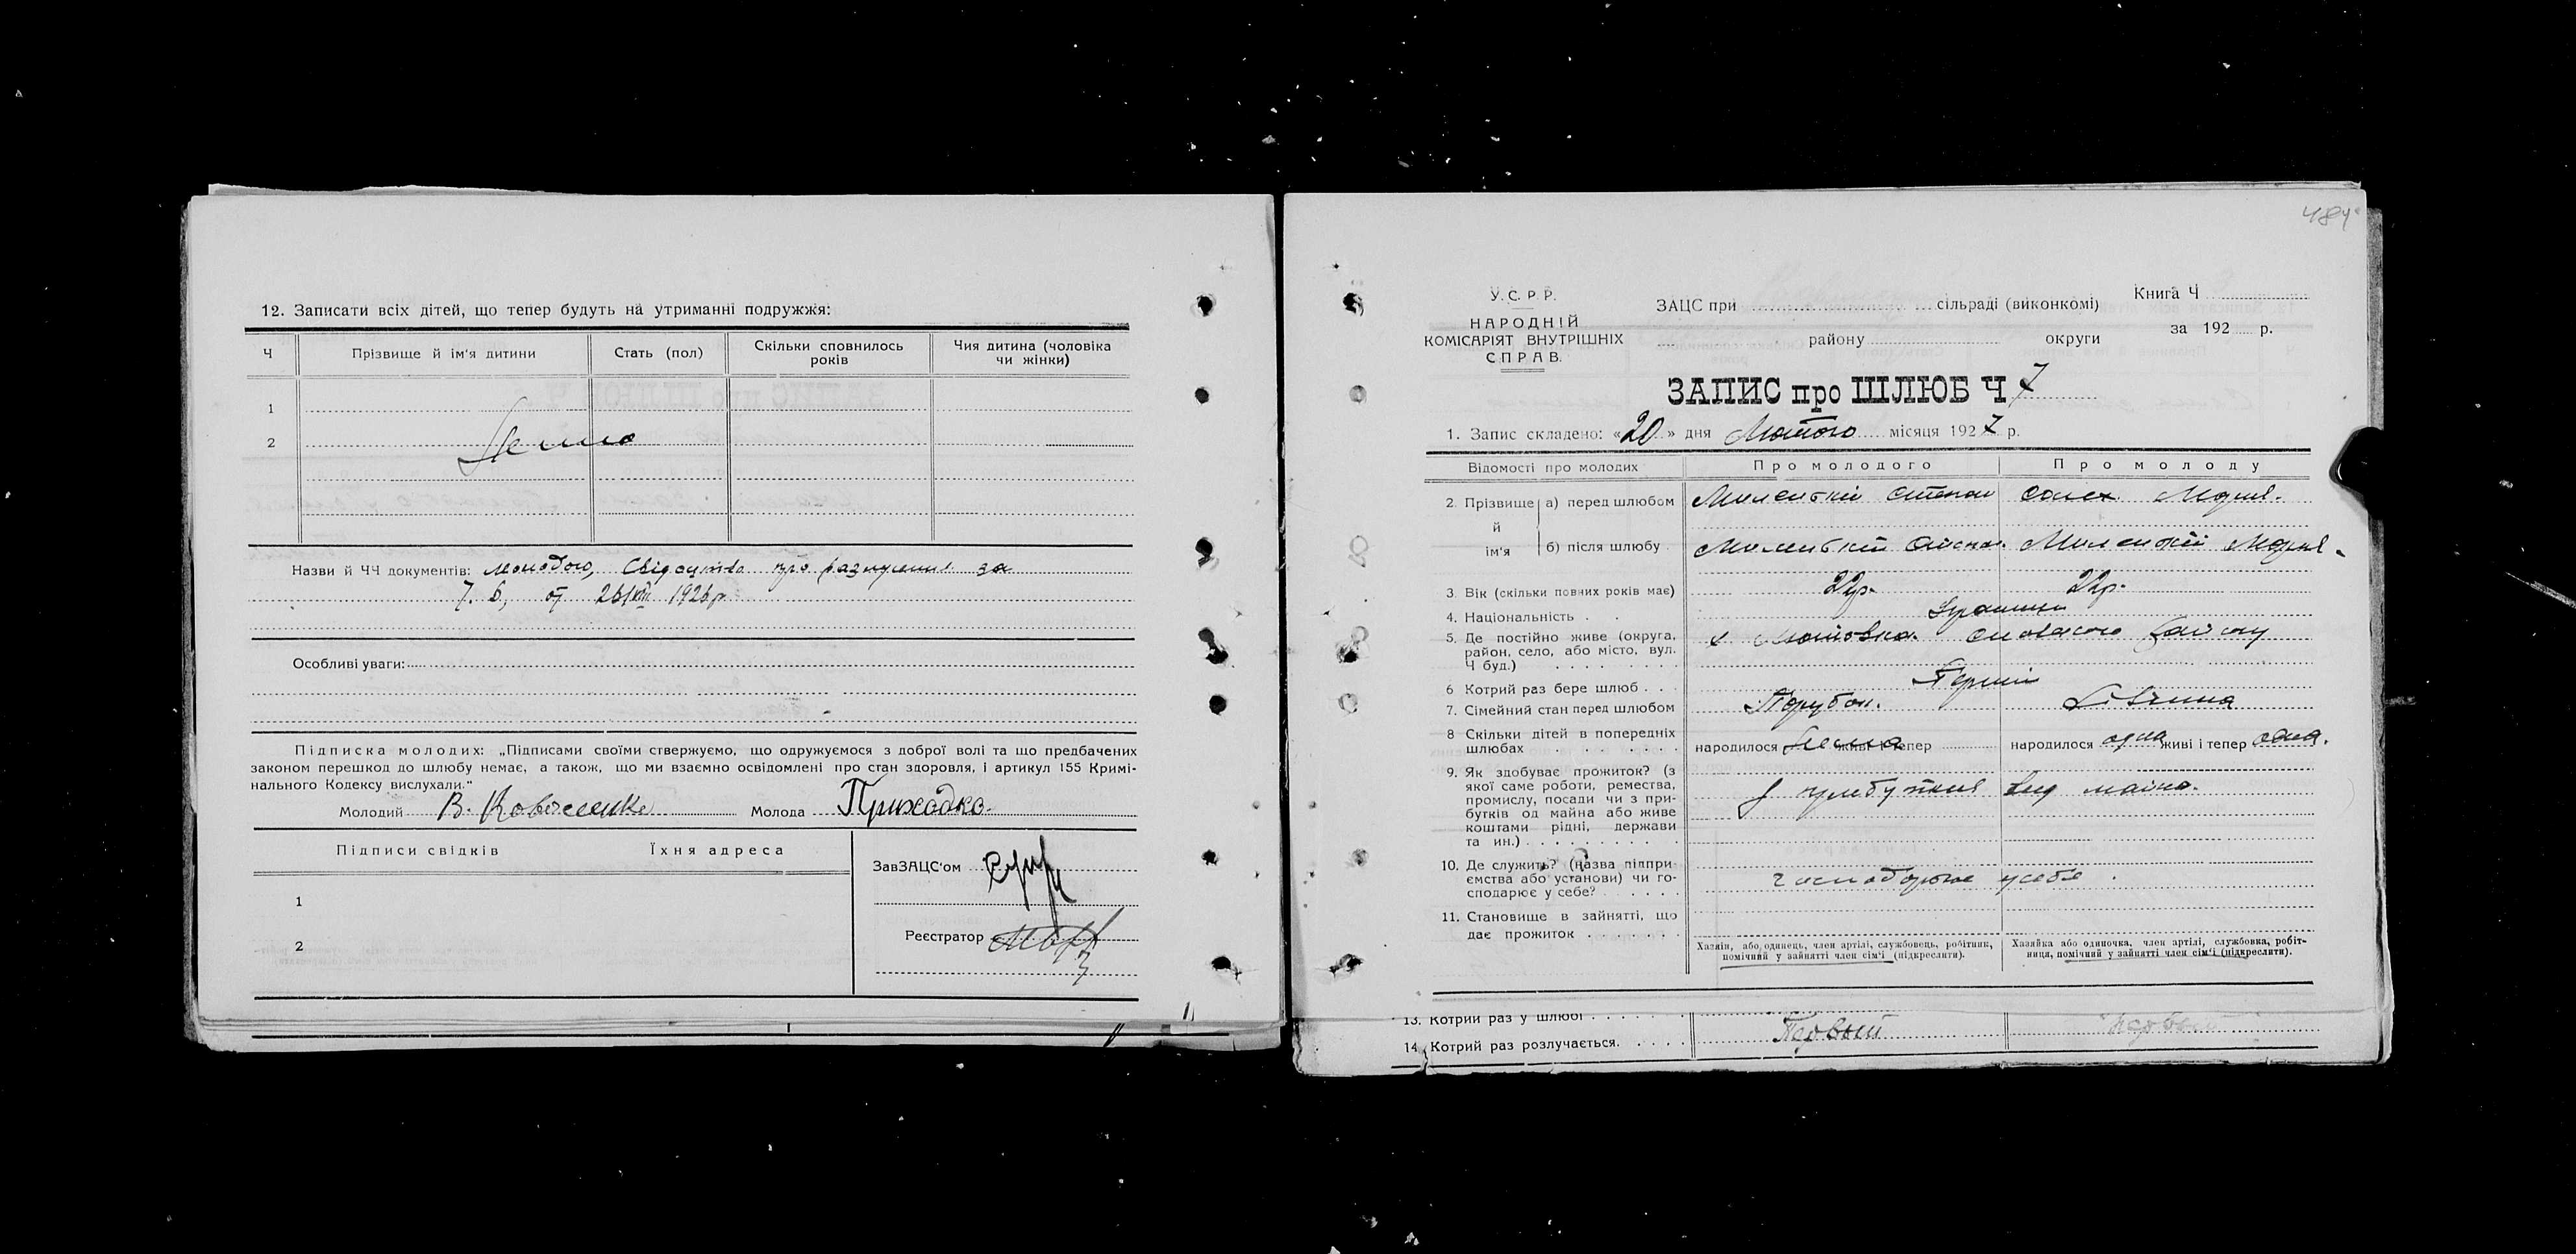 12. Записати всіх дітей, що тепер будуть на утриманні подружжя:
Ч Прізвище й ім'я дитини Стать (пол) Скільки сповнилось років Чия дитина (чоловіка чи жінки)
1
2
Нема
Назви й ЧЧ документів: молодого, Свідоцтво про за
1926 р
Особливі уваги:
Підписка молодих: „Підписами своїми ствержуємо, що одружуємося з доброї волі та що предбачених
законом перешкод до шлюбу немає, а також, що ми взаємно освідомлені про стан здоровля, і артикул 155 Кримі-
нального Кодексу вислухали."
Молодий В. Молода Приходко.
Підписи свідків Їхня адреса
ЗавЗАЦС'ом
1
Реєстратор
2
484
У.С.Р.Р.
НАРОДНІЙ
КОМІСАРІЯТ ВНУТРІШНІХ
СПРАВ.
ЗАЦС при сільраді (виконкомі)
району округи
Книга Ч
за 192 р.
ЗАПИС про ШЛЮБ Ч 7
1. Запис складено: «20» дня Лютого місяця 1927 р.
Відомості про молодих Про молодого Про молоду
2. Прізвище й ім'я
а) перед шлюбом
б) після шлюбу
3. Вік (скільки повних років має) 22р. 22р.
4. Національність . .
5. Де постійно живе (округа,
район, село, або місто, вул.
Ч буд.) . . . .
району
6 Котрий раз бере шлюб . . .
Перший
7. Сімейний стан перед шлюбом Парубок.
8 Скільки дітей в попередніх
шлюбах . . . .
народилося Нема живі і тепер
народилося одна живі і тепер одна.
9. Як здобуває прожиток? (з
якої саме роботи, ремества,
промислу, посади чи з при-
бутків од майна або живе
коштами рідні, держави
та ин.) . . . .
майна.
10. Де служить? (назва підпри-
ємства або установи) чи го-
сподарює у себе? . . . .
господарює у себе.
11. Становище в зайнятті, що
дає прожиток . . . .
Хазяїн, або одинець, член артілі, службовець, робітник,
помічний у зайнятті член сім'ї (підкреслити).
Хазяйка або одиночка, член артілі, службовка, робіт-
ниця, помічний у зайнятті член сім'ї (підкреслити).
13. Котрий раз у шлюбі . . . .
14. Котрий раз розлучається. . . . .
Первый